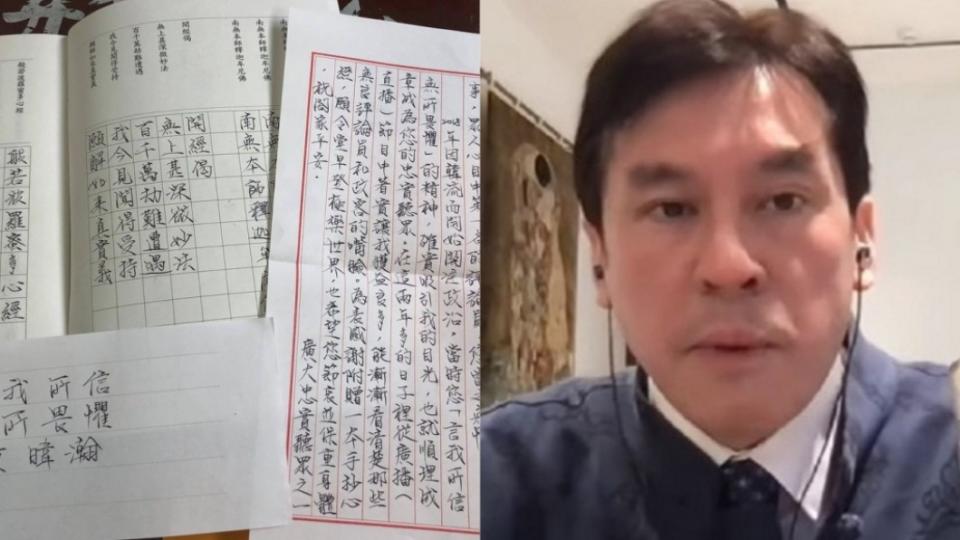 南無本師釋迦牟尼佛
南無本師釋迦牟尼佛
南無本師釋迦牟尼佛
開經偈
無上甚深微妙法
百千萬劫難遭遇
我今見聞得受持
願解如來真實義
南無
南無本師釋迦牟
開經偈
無上甚深微妙法
百千萬劫難遭遇
我今見聞得受持
願解如來真實義
般若波羅蜜多心經
般若波羅蜜多心經
我所信
所畏懼
暐瀚
事，眾人心目中第
年因韓流而開始關心政治，當時您「言我所信
無所畏懼」的精神，確實吸引我的目光，也就順理成
章成為您的忠實聽眾。在這兩年多的日子裡從廣播（
直播）節目中著實讓我獲益良多，能漸漸看清楚那些
無良評論員和政客的嘴臉。為表感謝附贈一本手抄心
經，願令堂早登極樂世界，也希望您節哀並保重身體
，祝闔家平安。
廣大忠實聽眾之一